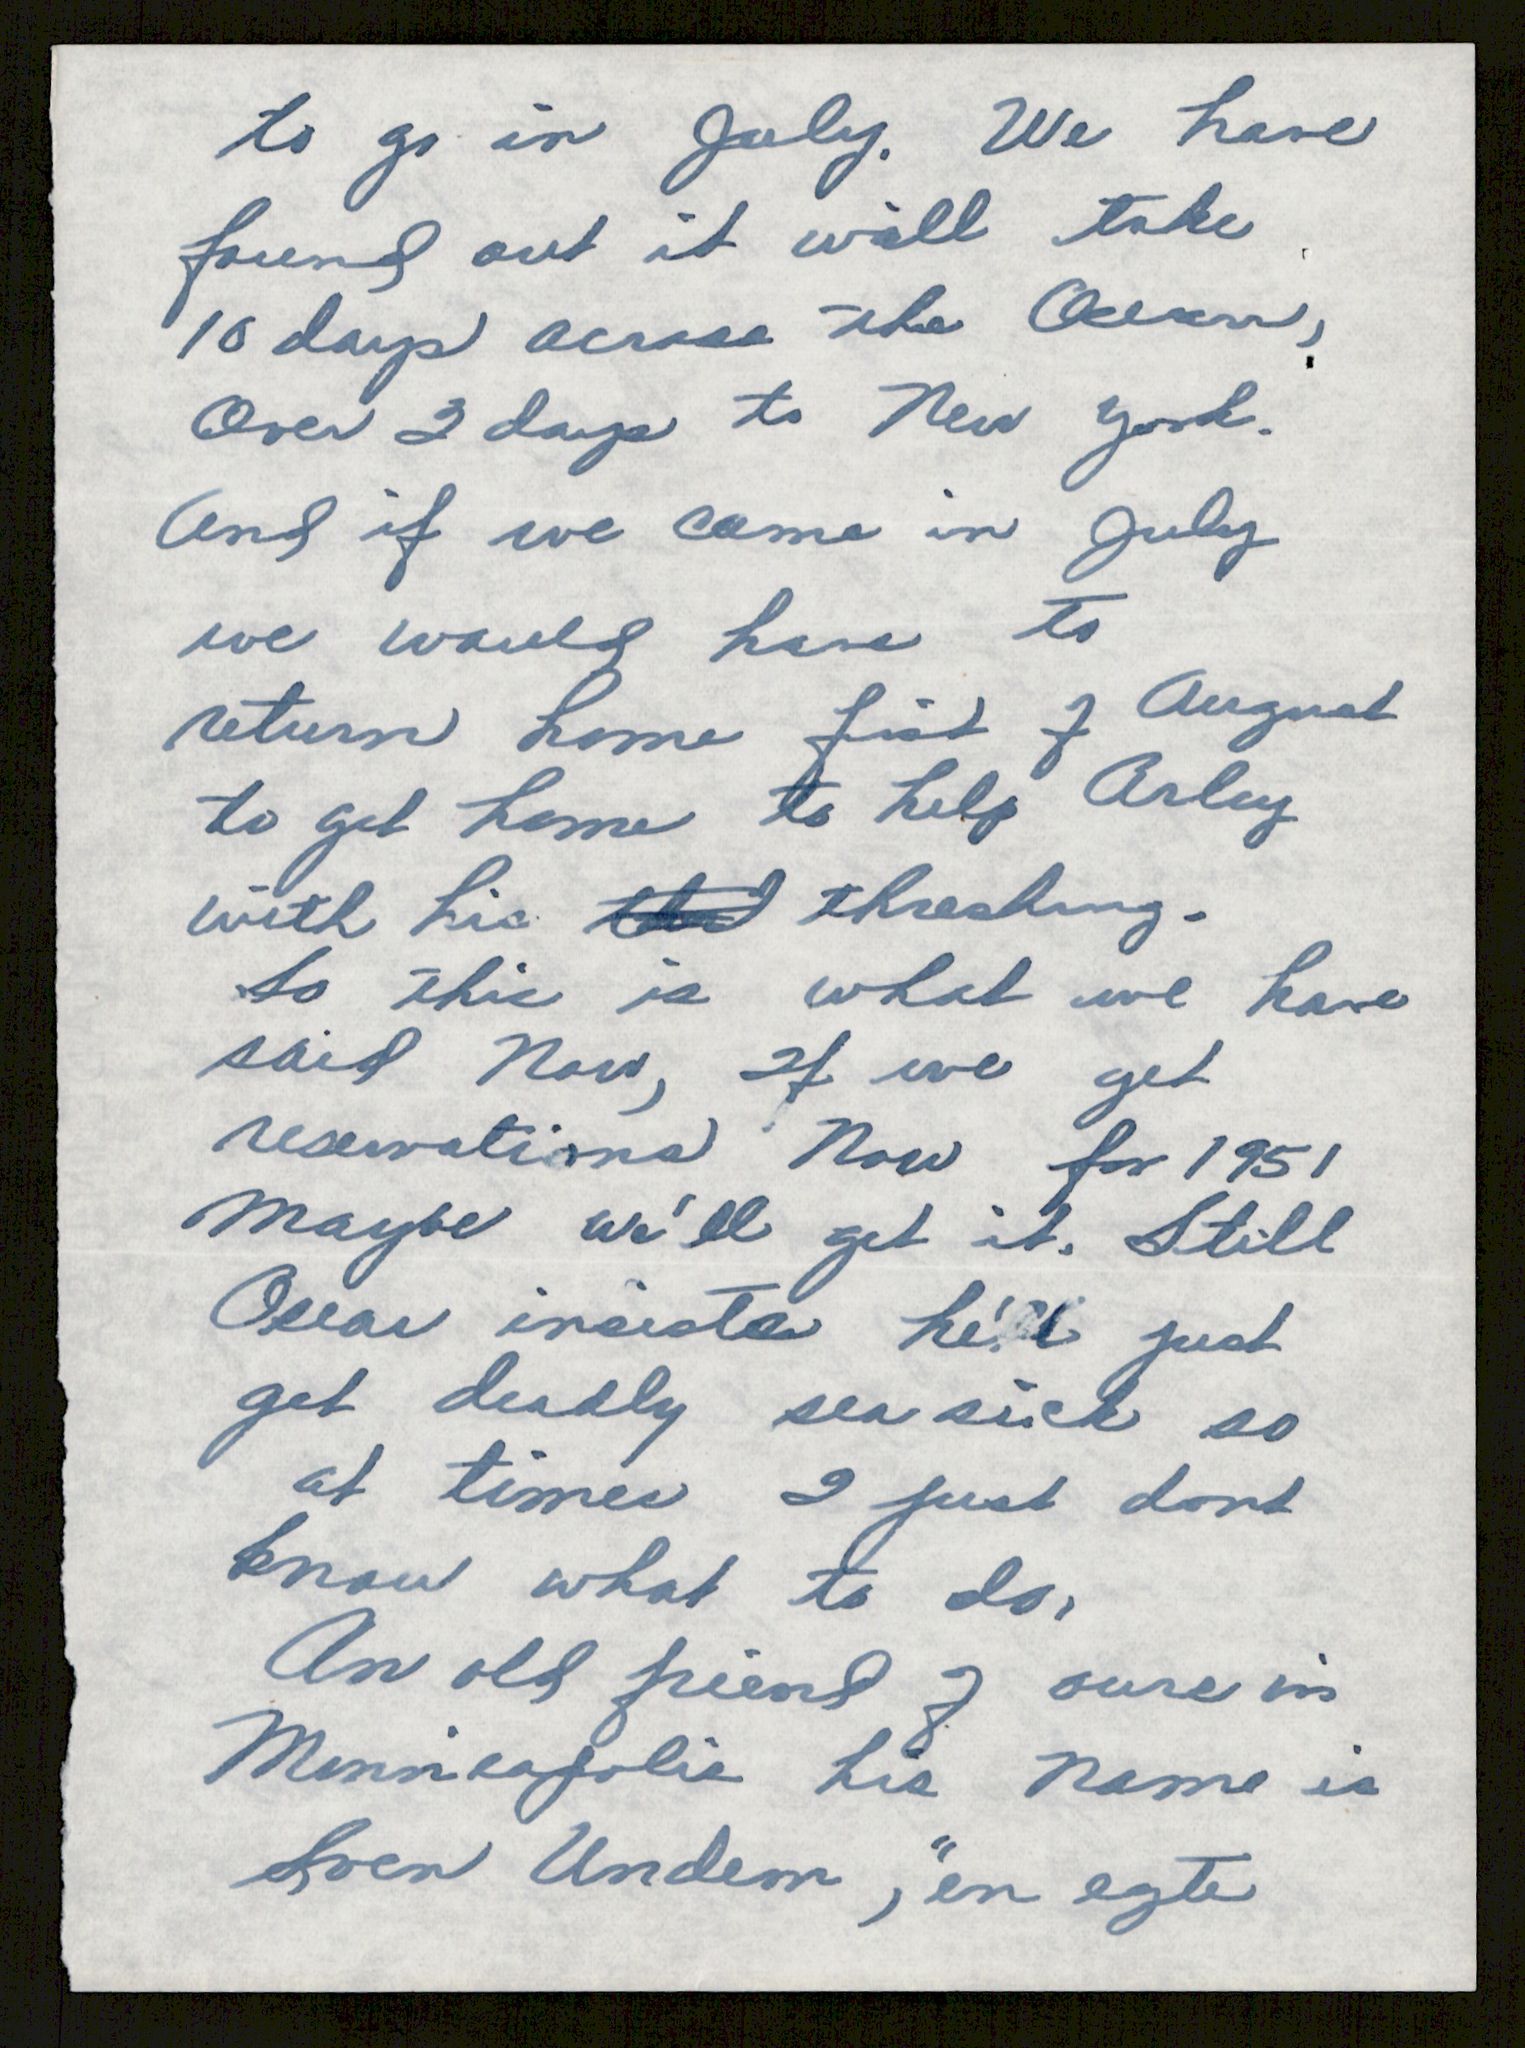 to go in July. We have
found out it will take
10 days across the Ocean,
Over 2 days to New York.
And if we came in July
we would have to
return home fist of August
to get home to help Arley
with his threshing.
So this is what we have
said Now, If we get
reservations Now for 1951
Maybe we'll get it. Still
Oscar insists he'll just
get deadly sea sick so
at times I just dont
know what to do.
An old friend of ours in
Minneapolis his Name is
Sven Undem, "en egte